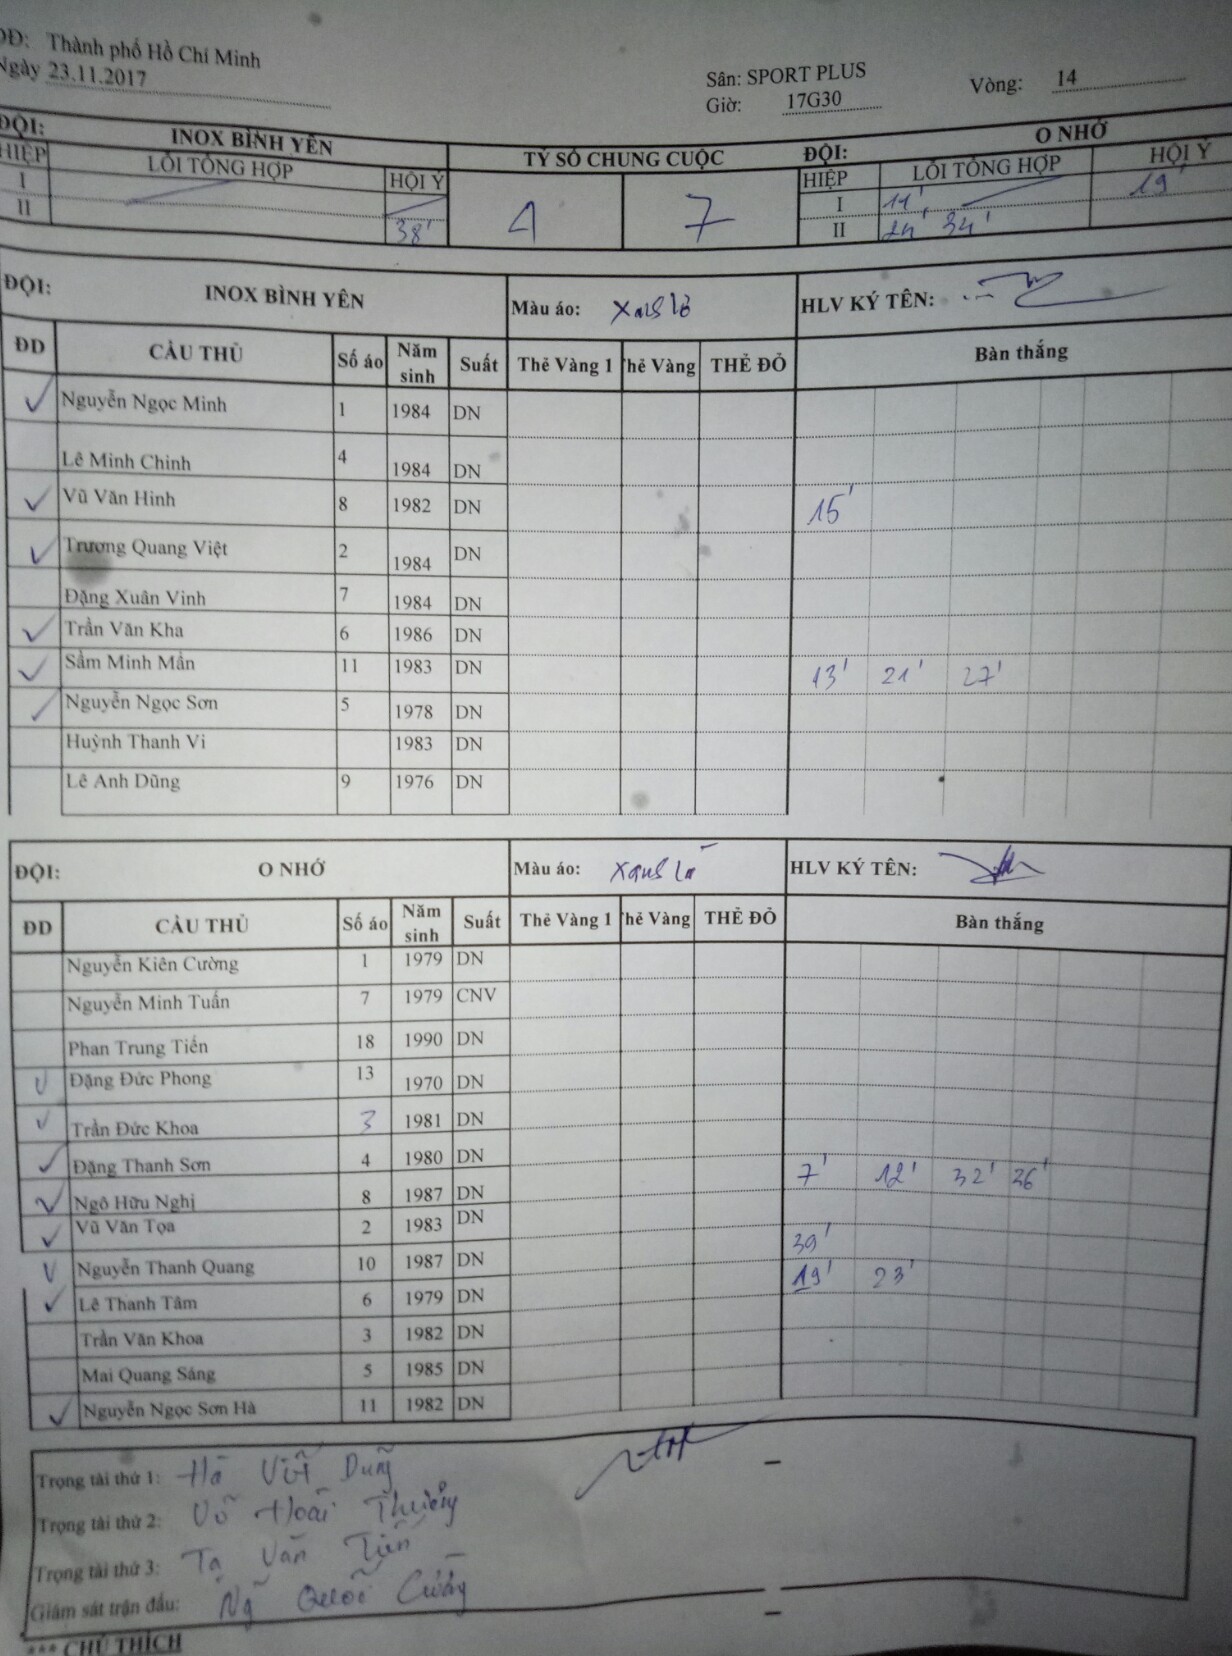 ĐĐ: Thành phố Hồ Chí Minh
Ngày 23.11.2017
Sân: SPORT PLUS
Giờ: 17G30
Vòng: 14
ĐỘI: INOX BÌNH YÊN TỶ SỐ CHUNG CUỘC ĐỘI: O NHỚ
HIỆP LỖI TỔNG HỢP HỘI Ý HIỆP LỖI TỔNG HỢP HỘI Ý
I 4 7 I 11', 19'
II 38' II 24' 34'
ĐỘI: INOX BÌNH YÊN Màu áo: HLV KÝ TÊN:
ĐD CẦU THỦ Số áo Năm sinh Suất Thẻ Vàng 1 Thẻ Vàng THẺ ĐỎ Bàn thắng
Nguyễn Ngọc Minh 1 1984 DN
Lê Minh Chinh 4 1984 DN
Vũ Văn Hinh 8 1982 DN 15'
Trương Quang Việt 2 1984 DN
Đặng Xuân Vinh 7 1984 DN
Trần Văn Kha 6 1986 DN
Sầm Minh Mẫn 11 1983 DN 13' 21' 27'
Nguyễn Ngọc Sơn 5 1978 DN
Huỳnh Thanh Vi 1983 DN
Lê Anh Dũng 9 1976 DN
ĐỘI: O NHỚ Màu áo: Xanh lá HLV KÝ TÊN:
ĐD CẦU THỦ Số áo Năm sinh Suất Thẻ Vàng 1 Thẻ Vàng THẺ ĐỎ Bàn thắng
Nguyễn Kiên Cường 1 1979 DN
Nguyễn Minh Tuấn 7 1979 CNV
Phan Trung Tiến 18 1990 DN
Đặng Đức Phong 13 1970 DN
Trần Đức Khoa 3 1981 DN
Đặng Thanh Sơn 4 1980 DN
Ngô Hữu Nghị 8 1987 DN 7' 12' 32' 36'
Vũ Văn Tọa 2 1983 DN
Nguyễn Thanh Quang 10 1987 DN 39'
Lê Thanh Tâm 6 1979 DN 19' 23'
Trần Văn Khoa 3 1982 DN
Mai Quang Sáng 5 1985 DN
Nguyễn Ngọc Sơn Hà 11 1982 DN
Trọng tài thứ 1: Hà Việt Dũng
Trọng tài thứ 2: Võ Hoài
Trọng tài thứ 3: Tạ Văn Tiến
Giám sát trận đấu: Ng Quốc Cường
*** CHÚ THÍCH